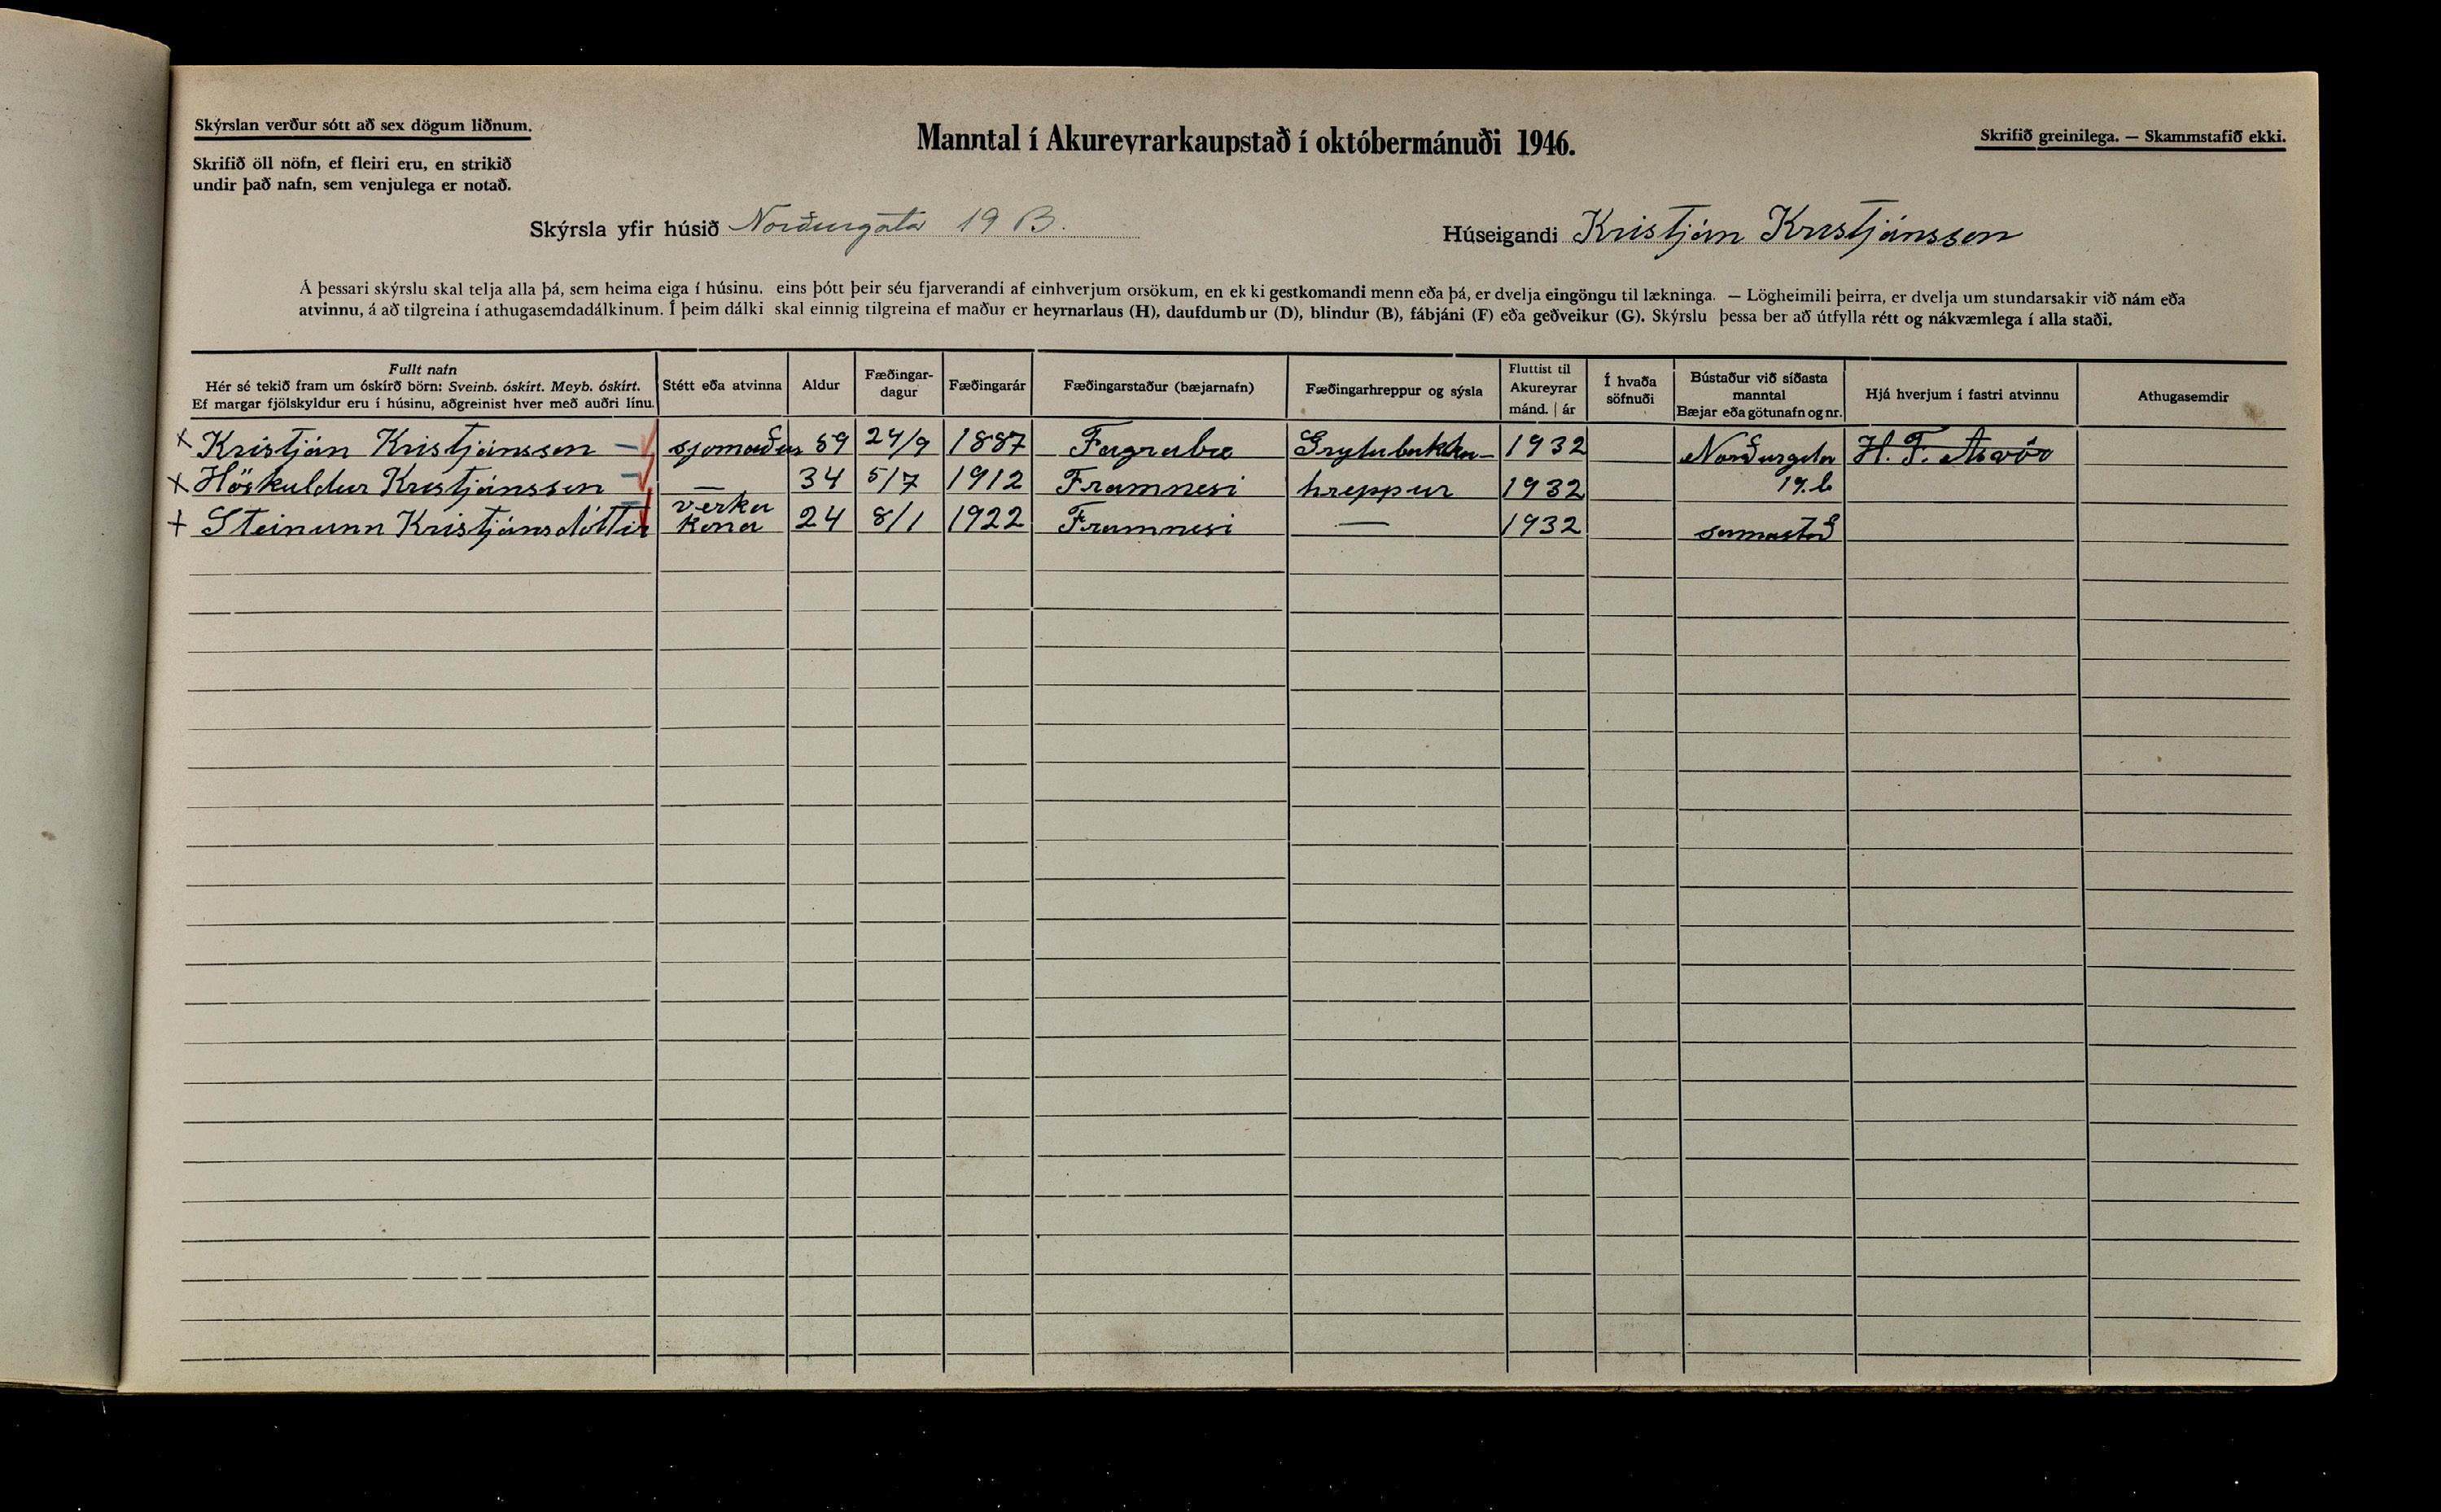 Skýrslan verður sótt að sex dögum liðnum.
Skrifið öll nöfn, ef fleiri eru, en strikið
undir það nafn, sem venjulega er notað.
Manntal í Akureyrarkaupstað í októbermánuði 1946.
Skrifið greinilega. — Skammstafið ekki.
Skýrsla yfir húsið Norðurgata 19 B.
Húseigandi Kristján Kristjánsson
Á þessari skýrslu skal telja alla þá, sem heima eiga í húsinu, eins þótt þeir séu fjarverandi af einhverjum orsökum, en ekki gestkomandi menn eða þá, er dvelja eingöngu til lækninga. — Lögheimili þeirra, er dvelja um stundarsakir við nám eða
atvinnu, á að tilgreina í athugasemdadálkinum. Í þeim dálki skal einnig tilgreina ef maður er heyrnarlaus (H), daufdumbur (D), blindur (B), fábjáni (F) eða geðveikur (G). Skýrslu þessa ber að útfylla rétt og nákvæmlega í alla staði.
Fullt nafn
Hér sé tekið fram um óskírð börn: Sveinb. óskírt. Meyb. óskírt.
Ef margar fjölskyldur eru í húsinu, aðgreinist hver með auðri línu.
Stétt eða atvinna
Aldur
Fæðingar-
dagur
Fæðingarár
Fæðingarstaður (bæjarnafn)
Fæðingarhreppur og sýsla
Fluttist til
Akureyrar
mánd. | ár
Í hvaða
söfnuði
Bústaður við síðasta
manntal
Bæjar eða götunafn og nr.
Hjá hverjum í fastri atvinnu
Athugasemdir
x Kristján Kristjánsson sjomaður 59 24/9 1887 Fagrabæ Grytubakka- 1932 Norðurgata H. F.
x Höskuldur Kristjánssen — 34 5/7 1912 Framnesi hreppur 1932 19.b
+ Steinunn Kristjánsdóttir verka kona 24 8/1 1922 Framnesi — 1932 samastað